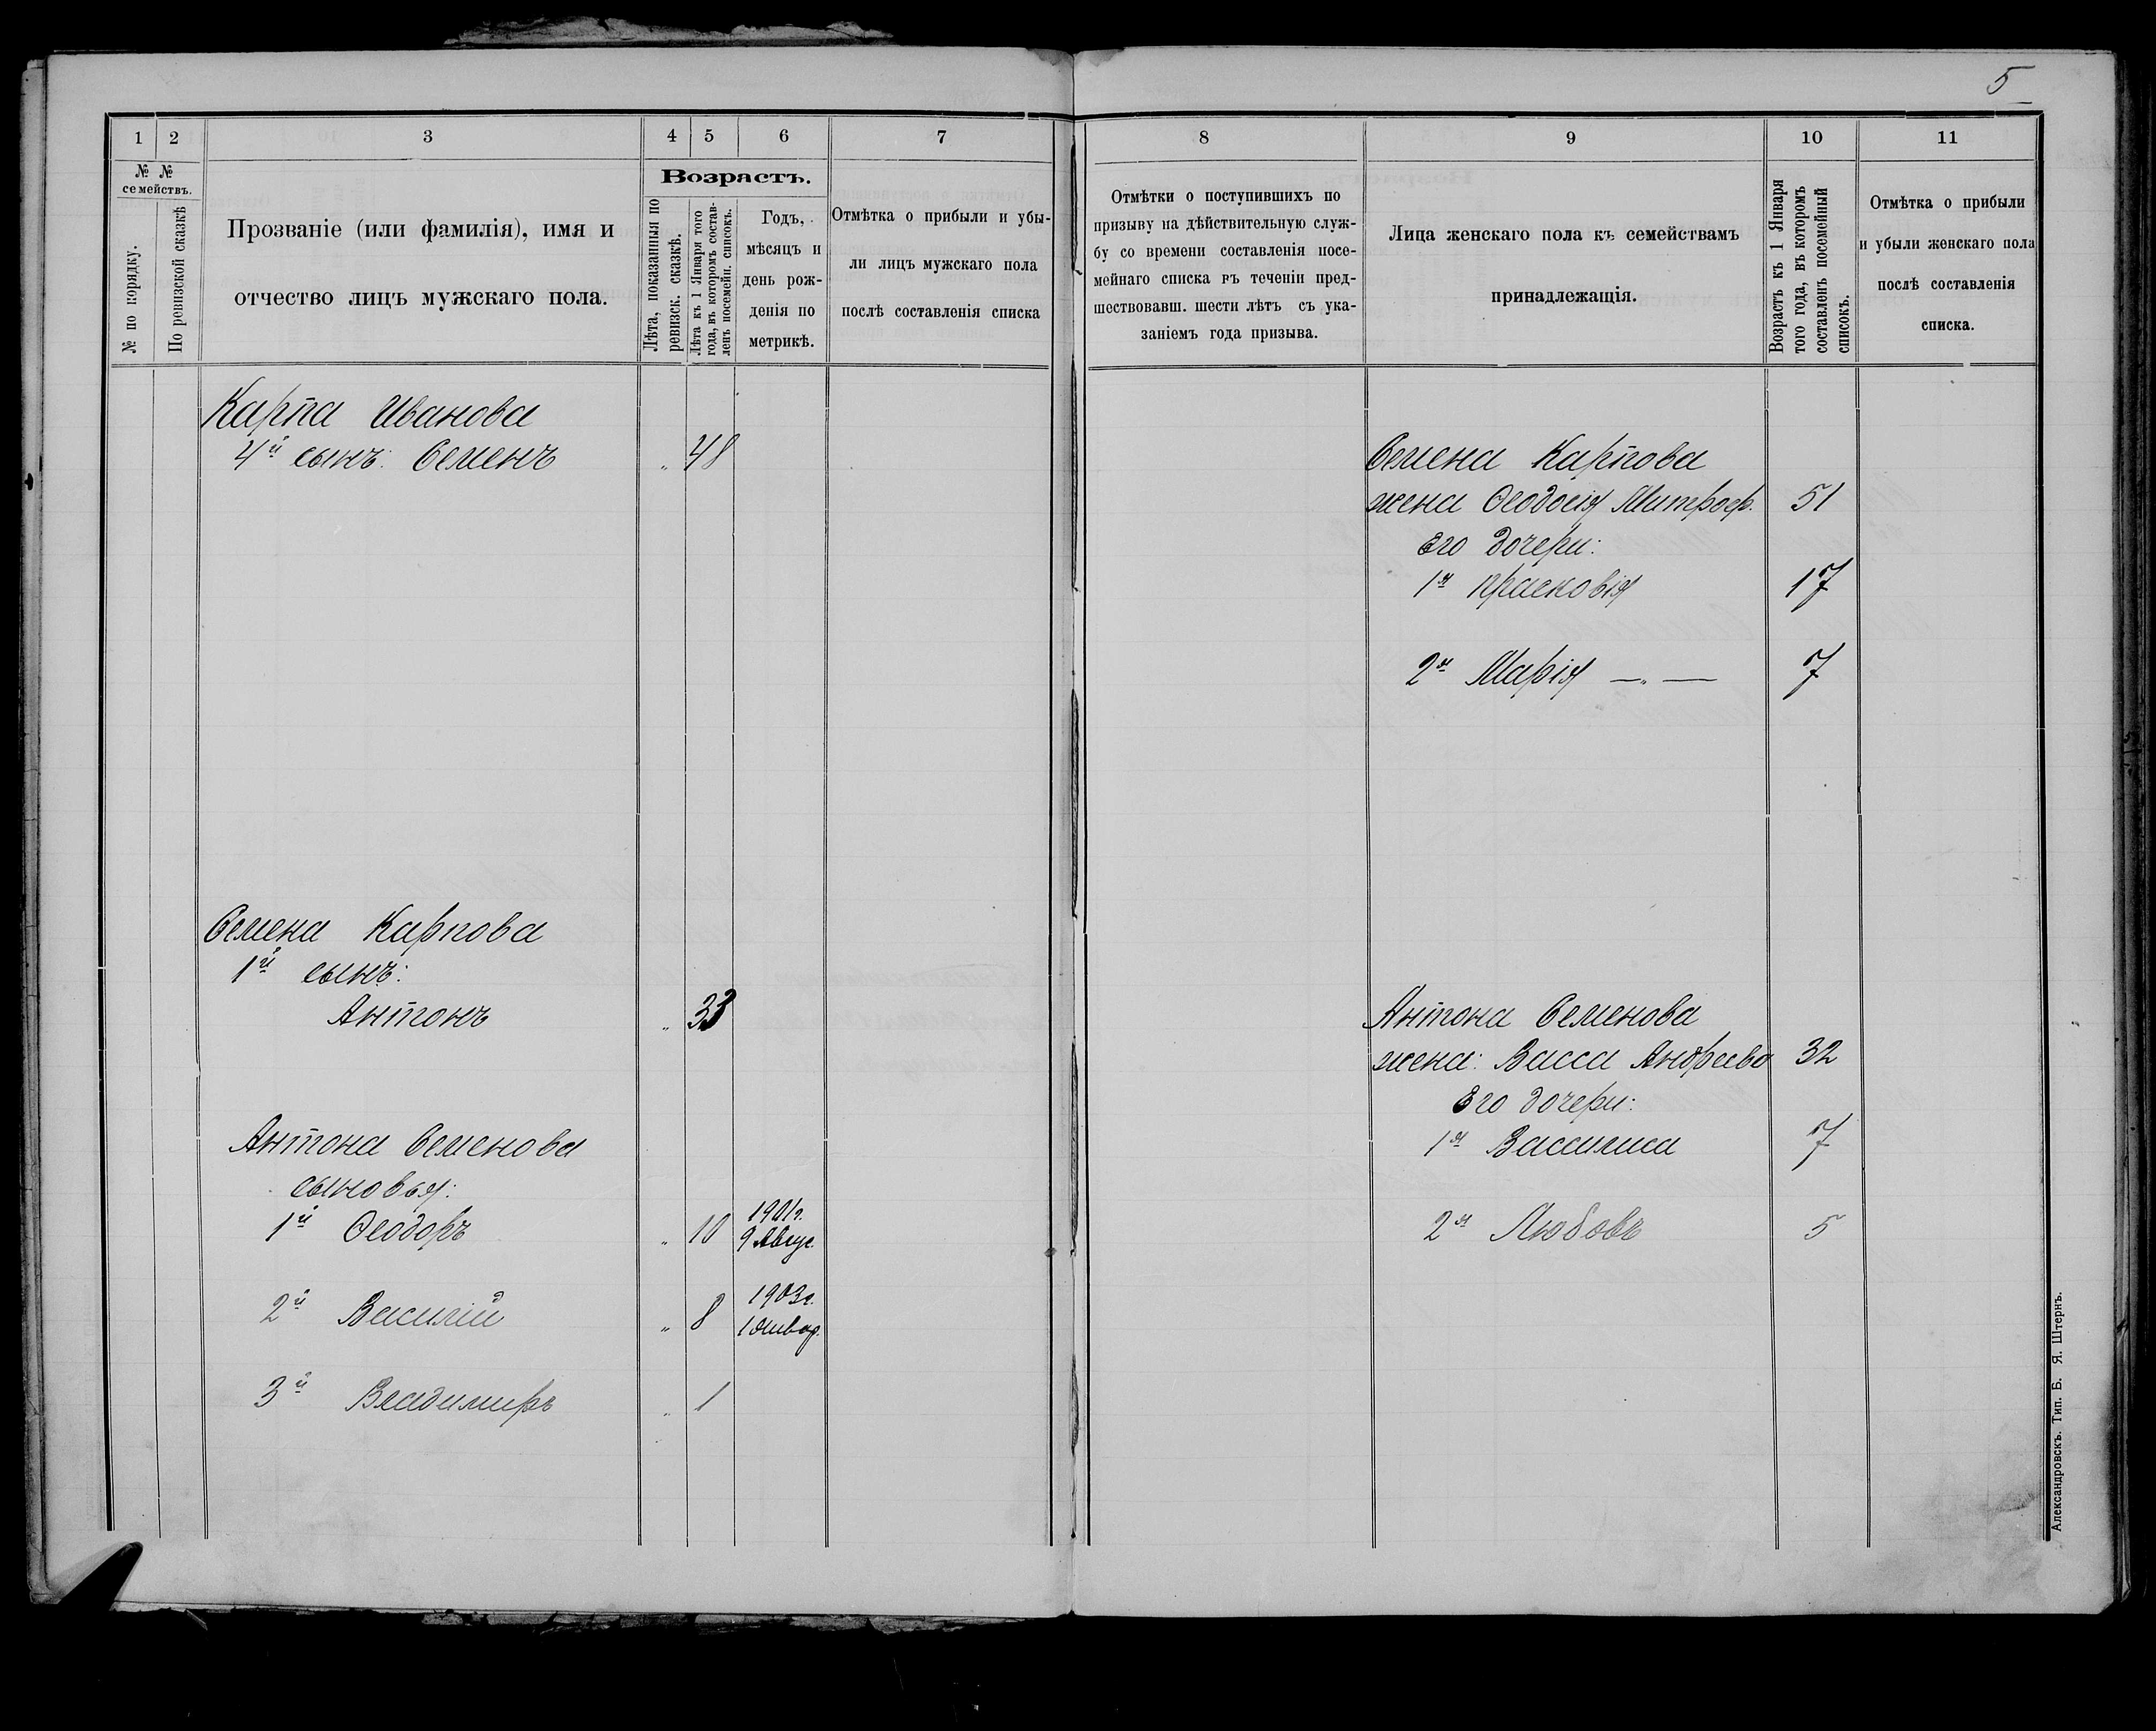 5
1 2 3 4 5 6 7
№ № семействъ.
№ по порядку.
По ревизской сказкѣ
Прозваніе (или фамилія), имя и
отчество лицъ мужскаго пола.
Возрастъ.
Лѣта, показанныя по
ревизск. сказкѣ.
Лѣта къ 1 Января того
года, въ которомъ состав-
ленъ посемейн. списокъ.
Годъ,
мѣсяцъ и
день рож-
денія по
метрикѣ.
Отмѣтка о прибыли и убы-
ли лицъ мужскаго пола
послѣ составленія списка
Карпа Иванова
4й сынъ: Семенъ „ 48
Семена Карпова
1й сынъ:
Антонъ „ 33
Антона Семенова
сыновья:
1й Ѳеодоръ „ 10 1901г.
9 Авгус.
2й Василій „ 8 1903г.
1 Январ.
3й Владимиръ „ 1
8 9 10 11
Отмѣтки о поступившихъ по
призыву на дѣйствительную служ-
бу со времени составленія посе-
мейнаго списка въ теченіи пред-
шествовавш. шести лѣтъ съ ука-
заніемъ года призыва.
Лица женскаго пола къ семействамъ
принадлежащія.
Возрастъ къ 1 Января
того года, въ которомъ
составленъ посемейный
списокъ.
Отмѣтка о прибыли
и убыли женскаго пола
послѣ составленія
списка.
Семена Карпова
жена Ѳеодосія Митроф. 51
Его дочери:
1я Прасковія 17
2я Марія —„— 7
Антона Семенова
жена: Васса Андреева 32
Его дочери:
1я Вассилиса 7
2я Любовь 5
Александровскъ. Тип. Б. Я. Штернъ.